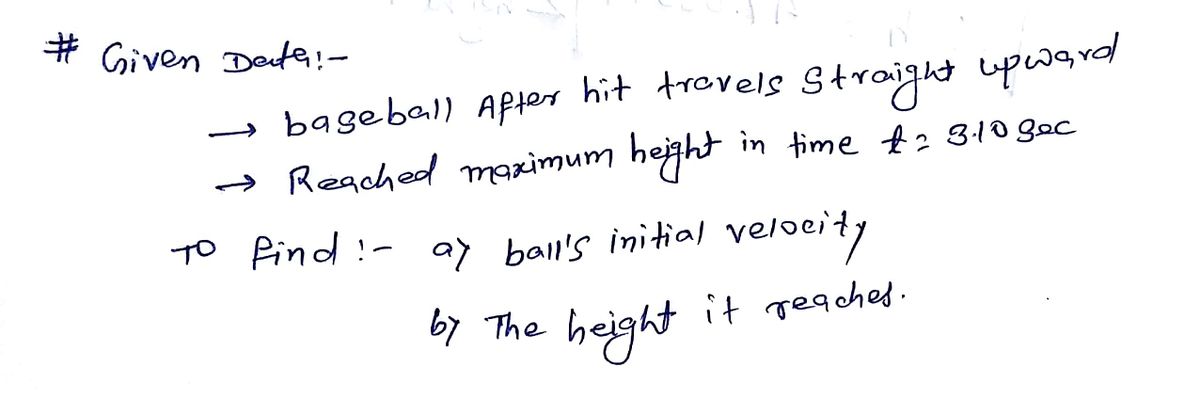 # Given Data:-
→ baseball After hit travels straight upward
→ Reached maximum height in time t = 3.10 sec
To find :- a) ball's initial velocity
b) The height it reaches.